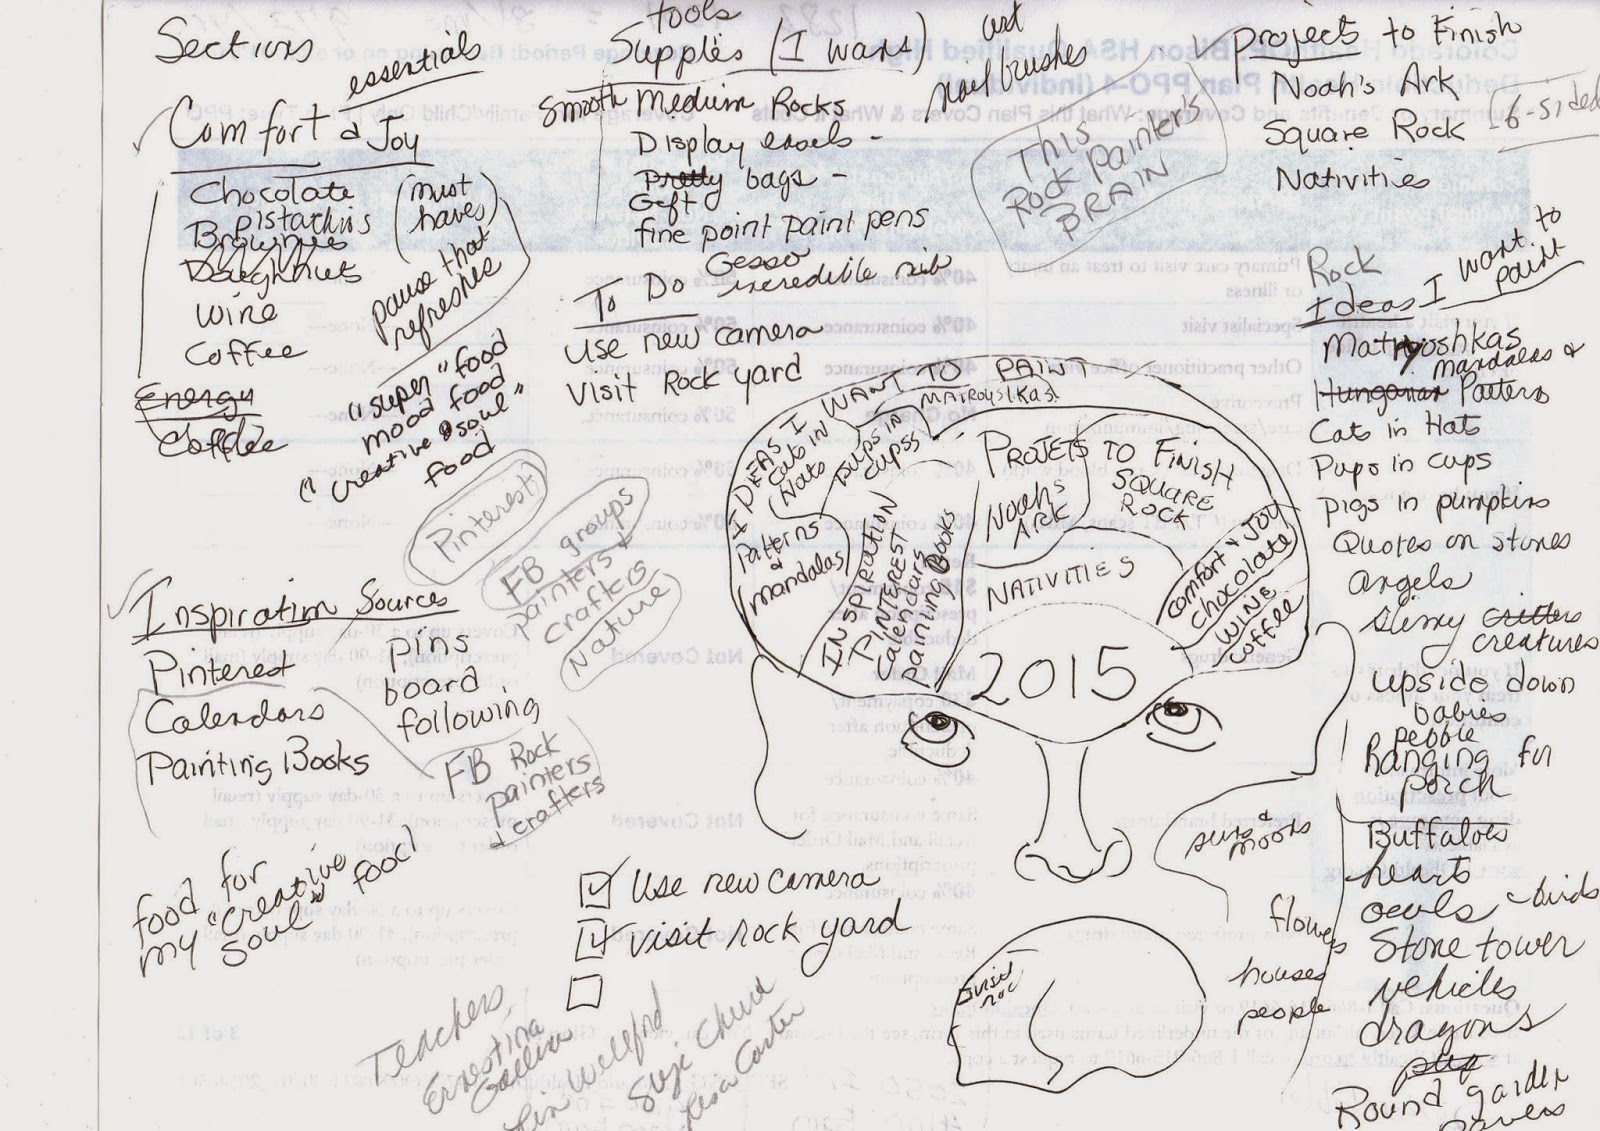 Sections
essentials
Comfort & Joy
Chocolate
pistachios
Brownies
Doughnuts
Wine
Coffee
(must
haves)
pause that
refreshes
Energy
Coffee
"super" food
mood food
creative soul"
food
tools
Supplies (I want)
Smooth Medium Rocks
Display easels -
Pretty bags -
Gift
fine point paint pens
Gesso
incredible nib
nail brushes
To Do
Use new camera
Visit Rock yard
This
Rock Painter's
BRAIN
Projects to Finish
Noah's Ark
Square Rock - 6-sided
Nativities
Rock
Ideas I want to
paint
Matryoshkas
mandalas &
Hungarian Patterns
Cats in Hats
Pups in cups
Pigs in pumpkins
Quotes on stones
angels
slimy critters
creatures
upside down
babies
pebble
hanging for
porch
Buffaloes
hearts
owls - birds
Stone tower
vehicles
dragons
Round garden
pavers
suns &
moons
flowers
houses
people
Pinterest
FB groups
painters &
crafters
Nature
Inspiration Sources
Pinterest
Calendars
Painting Books
pins
board
following
FB Rock
painters
& crafters
food for
my "creative
soul" food
IDEAS I WANT TO PAINT
Cats in
Hats
PUPS IN
CUPSS
MATROYSHKAS
Patterns
&
mandalas
INSPIRATION
PINTEREST
Calendars
Painting Books
PROJETS TO FINISH
SQUARE
ROCK
NOAH'S
ARK
NATIVITIES
Comfort & Joy
Chocolate
WINE
Coffee
2015
Use new camera
Visit rock yard
Teachers,
Ernestina
Gallina
Lin Wellford